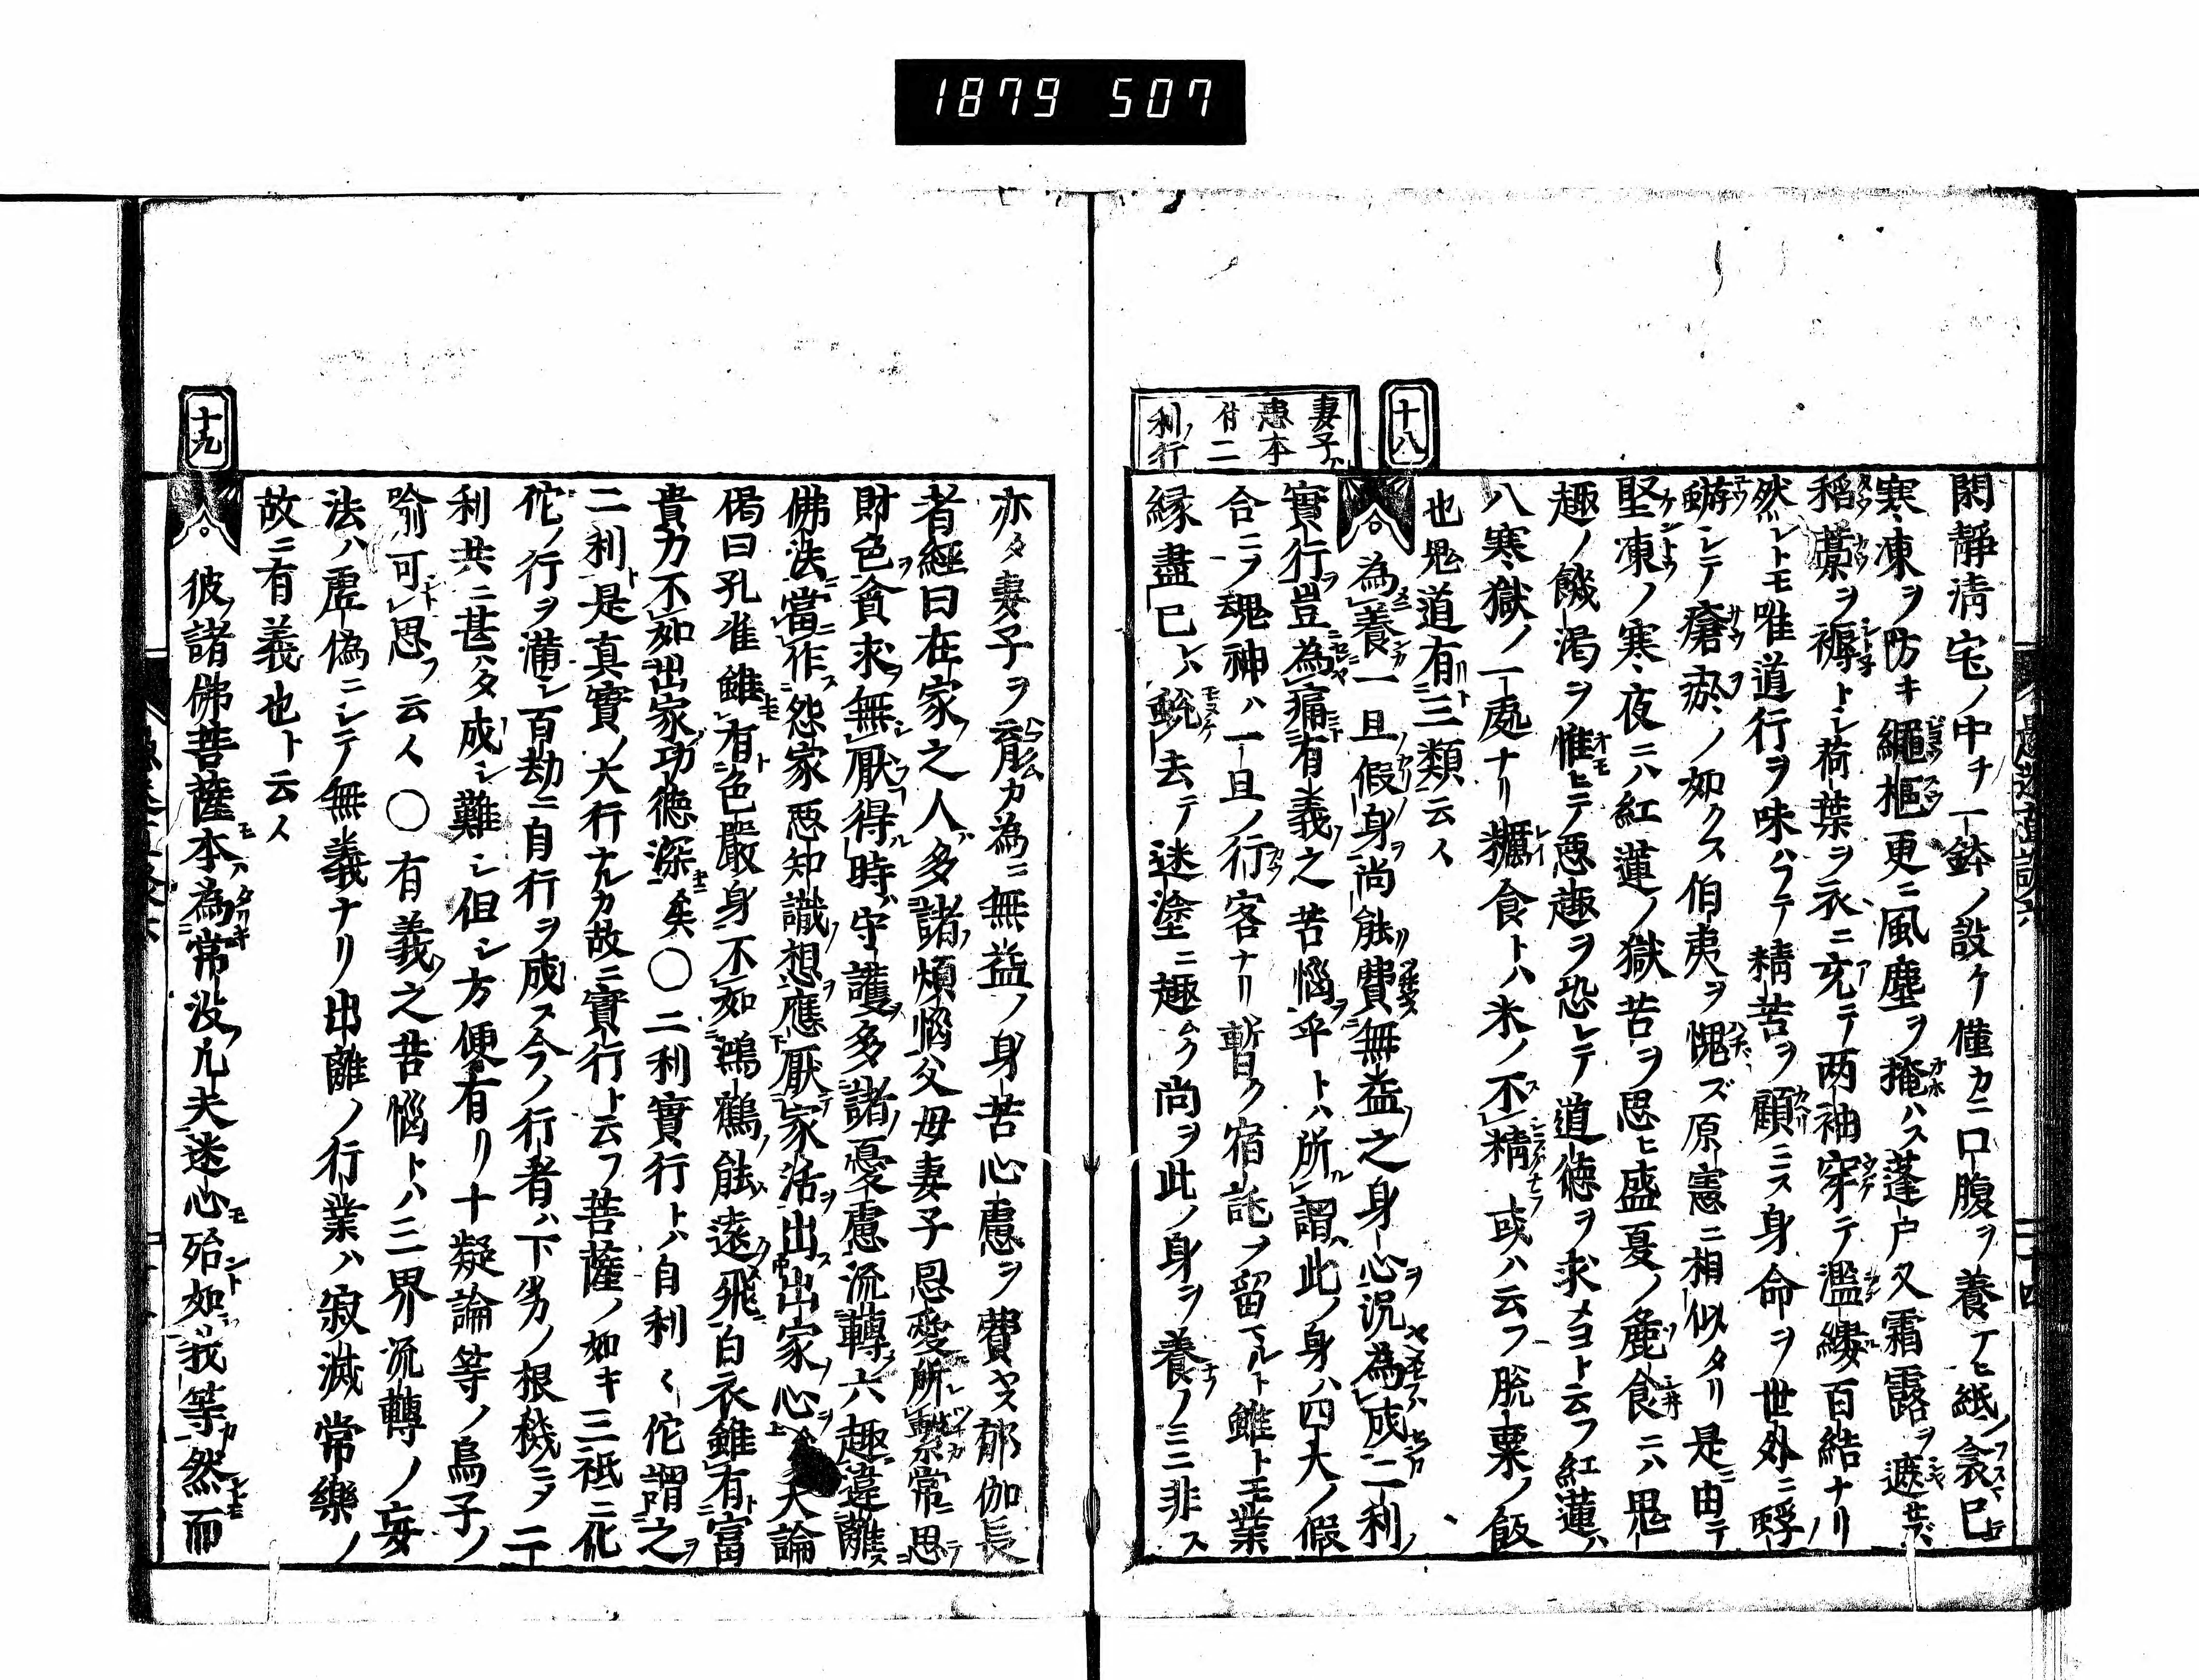 1879 507
十八
妻子ハ
患本
付二
利ノ行
閑靜清宅ノ中チ一鉢ノ設ケ僅カニ口腹ヲ養ナヒ紙衾巳
寒凍ヲ防キ繩樞更ニ風塵ヲ掩ハス蓬戸又霜露ヲ遮サ
稻藁ヲ褥トシ荷葉ヲ衣ニ充テ两袖穿テ濫縷百結ナリ
然レトモ唯道行ヲ味ハフテ精苦ヲ顧ニス身命ヲ世外ニ
シテ瘡瘀ノ如クス伯夷ヲ愧ズ原憲ニ相似タリ是ニ由テ
堅凍ノ寒夜ニハ紅蓮ノ獄苦ヲ思ヒ盛夏ノ麁食ニハ鬼
趣ノ饑渇ヲ惟ヒテ悪趣ヲ恐レテ道徳ヲ求メヨト云フ紅蓮ハ
八寒獄ノ一處ナリ糲食トハ米ノ不精或ハ云フ脱粟ノ飯
也鬼道有三類云々
為養一旦假身尚能費無益之身心況為成二利
實行豈為痛有義之苦惱乎トハ所謂此ノ身ハ四大ノ假
合ニノ魂神ハ一旦ノ行客ナリ暫ク宿託ノ留マルト雖ト王業
縁盡巳レハ蛻去テ迷塗ニ趣ムク尚ヲ此ノ身ヲ養ノミニ非ス
亦タ妻子ヲ育ムカ為ニ無益ノ身苦心慮ヲ費ヤス郁伽長
者經曰在家之人多諸煩惱父母妻子恩愛所繫常思
財色貪求無厭得時守護多諸憂慮流轉六趣違離
佛法當作怨家悪知識想應厭家活出出家心大論
偈曰孔雀雖有色嚴身不如鴻鶴能遠飛白衣雖有富
貴力不如出家功徳深矣〇二利實行トハ自利々佗謂之
二利是真實ノ大行ナルカ故ニ實行ト云フ菩薩ノ如キ三祇ニ化
佗ノ行ヲ滿シ百劫ニ自行ヲ成ス今ノ行者ハ下劣ノ根機ニタ二
利共ニ甚ハタ成シ難シ但シ方便有リ十疑論等ノ鳥子ノ
喩可思フ云々〇有義之苦惱トハ三界流轉ノ妄
法ハ虚偽ニシテ無義ナリ出離ノ行業ハ寂滅常樂ノ
故ニ有義也ト云々
十九
彼諸佛菩薩本為常没凡夫迷心殆如我等然而